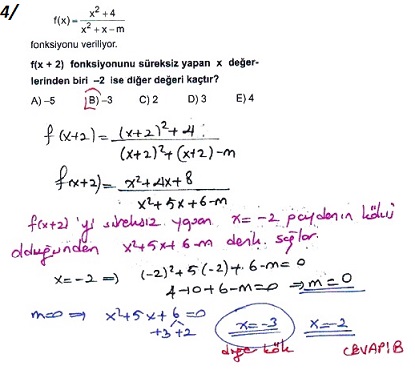 4/
f(x) = x² + 4 / x² + x – m
fonksiyonu veriliyor.
f(x + 2) fonksiyonunu süreksiz yapan x değer-
lerinden biri –2 ise diğer değeri kaçtır?
A) –5 B) –3 C) 2 D) 3 E) 4
f(x+2) = (x+2)² + 4 / (x+2)² + (x+2) – m
f(x+2) = x² + 4x + 8 / x² + 5x + 6 – m
f(x+2) 'yi süreksiz yapan x = –2 paydanın kökü
olduğundan x² + 5x + 6 – m denk. sağlar.
x = –2 ⇒ (–2)² + 5(–2) + 6 – m = 0
4 – 10 + 6 – m = 0 ⇒ m = 0
m = 0 ⇒ x² + 5x + 6 = 0 x = –3 x = –2
+3 +2
diğer kök CEVAP B